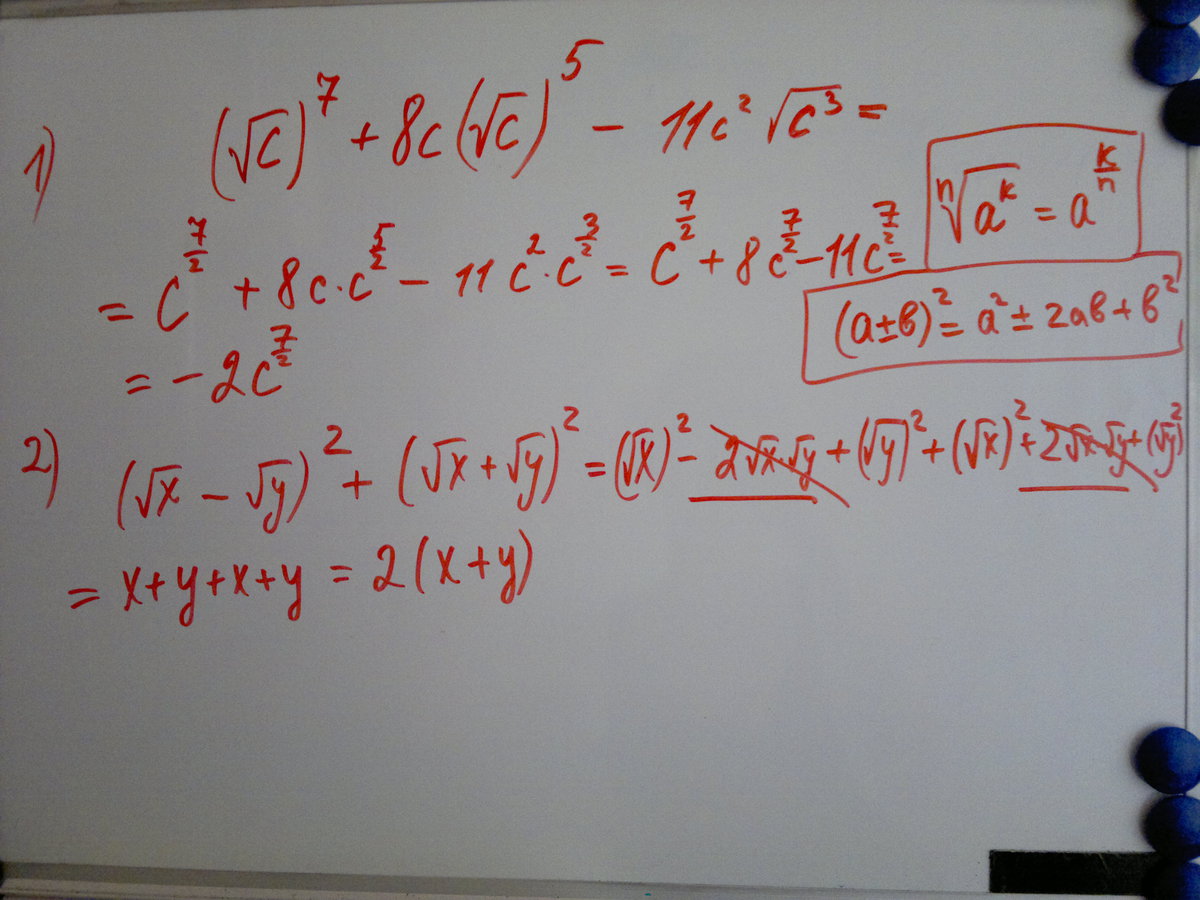 1) (√c)⁷ + 8c(√c)⁵ − 11c² √c³ =
= c^(7/2) + 8c·c^(5/2) − 11c²·c^(3/2) = c^(7/2) + 8c^(7/2) − 11c^(7/2) =
= −2c^(7/2)
ⁿ√aᵏ = a^(k/n)
(a±b)² = a² ± 2ab + b²
2) (√x − √y)² + (√x + √y)² = (√x)² − 2√x·√y + (√y)² + (√x)² + 2√x·√y + (√y)²
= x+y+x+y = 2(x+y)